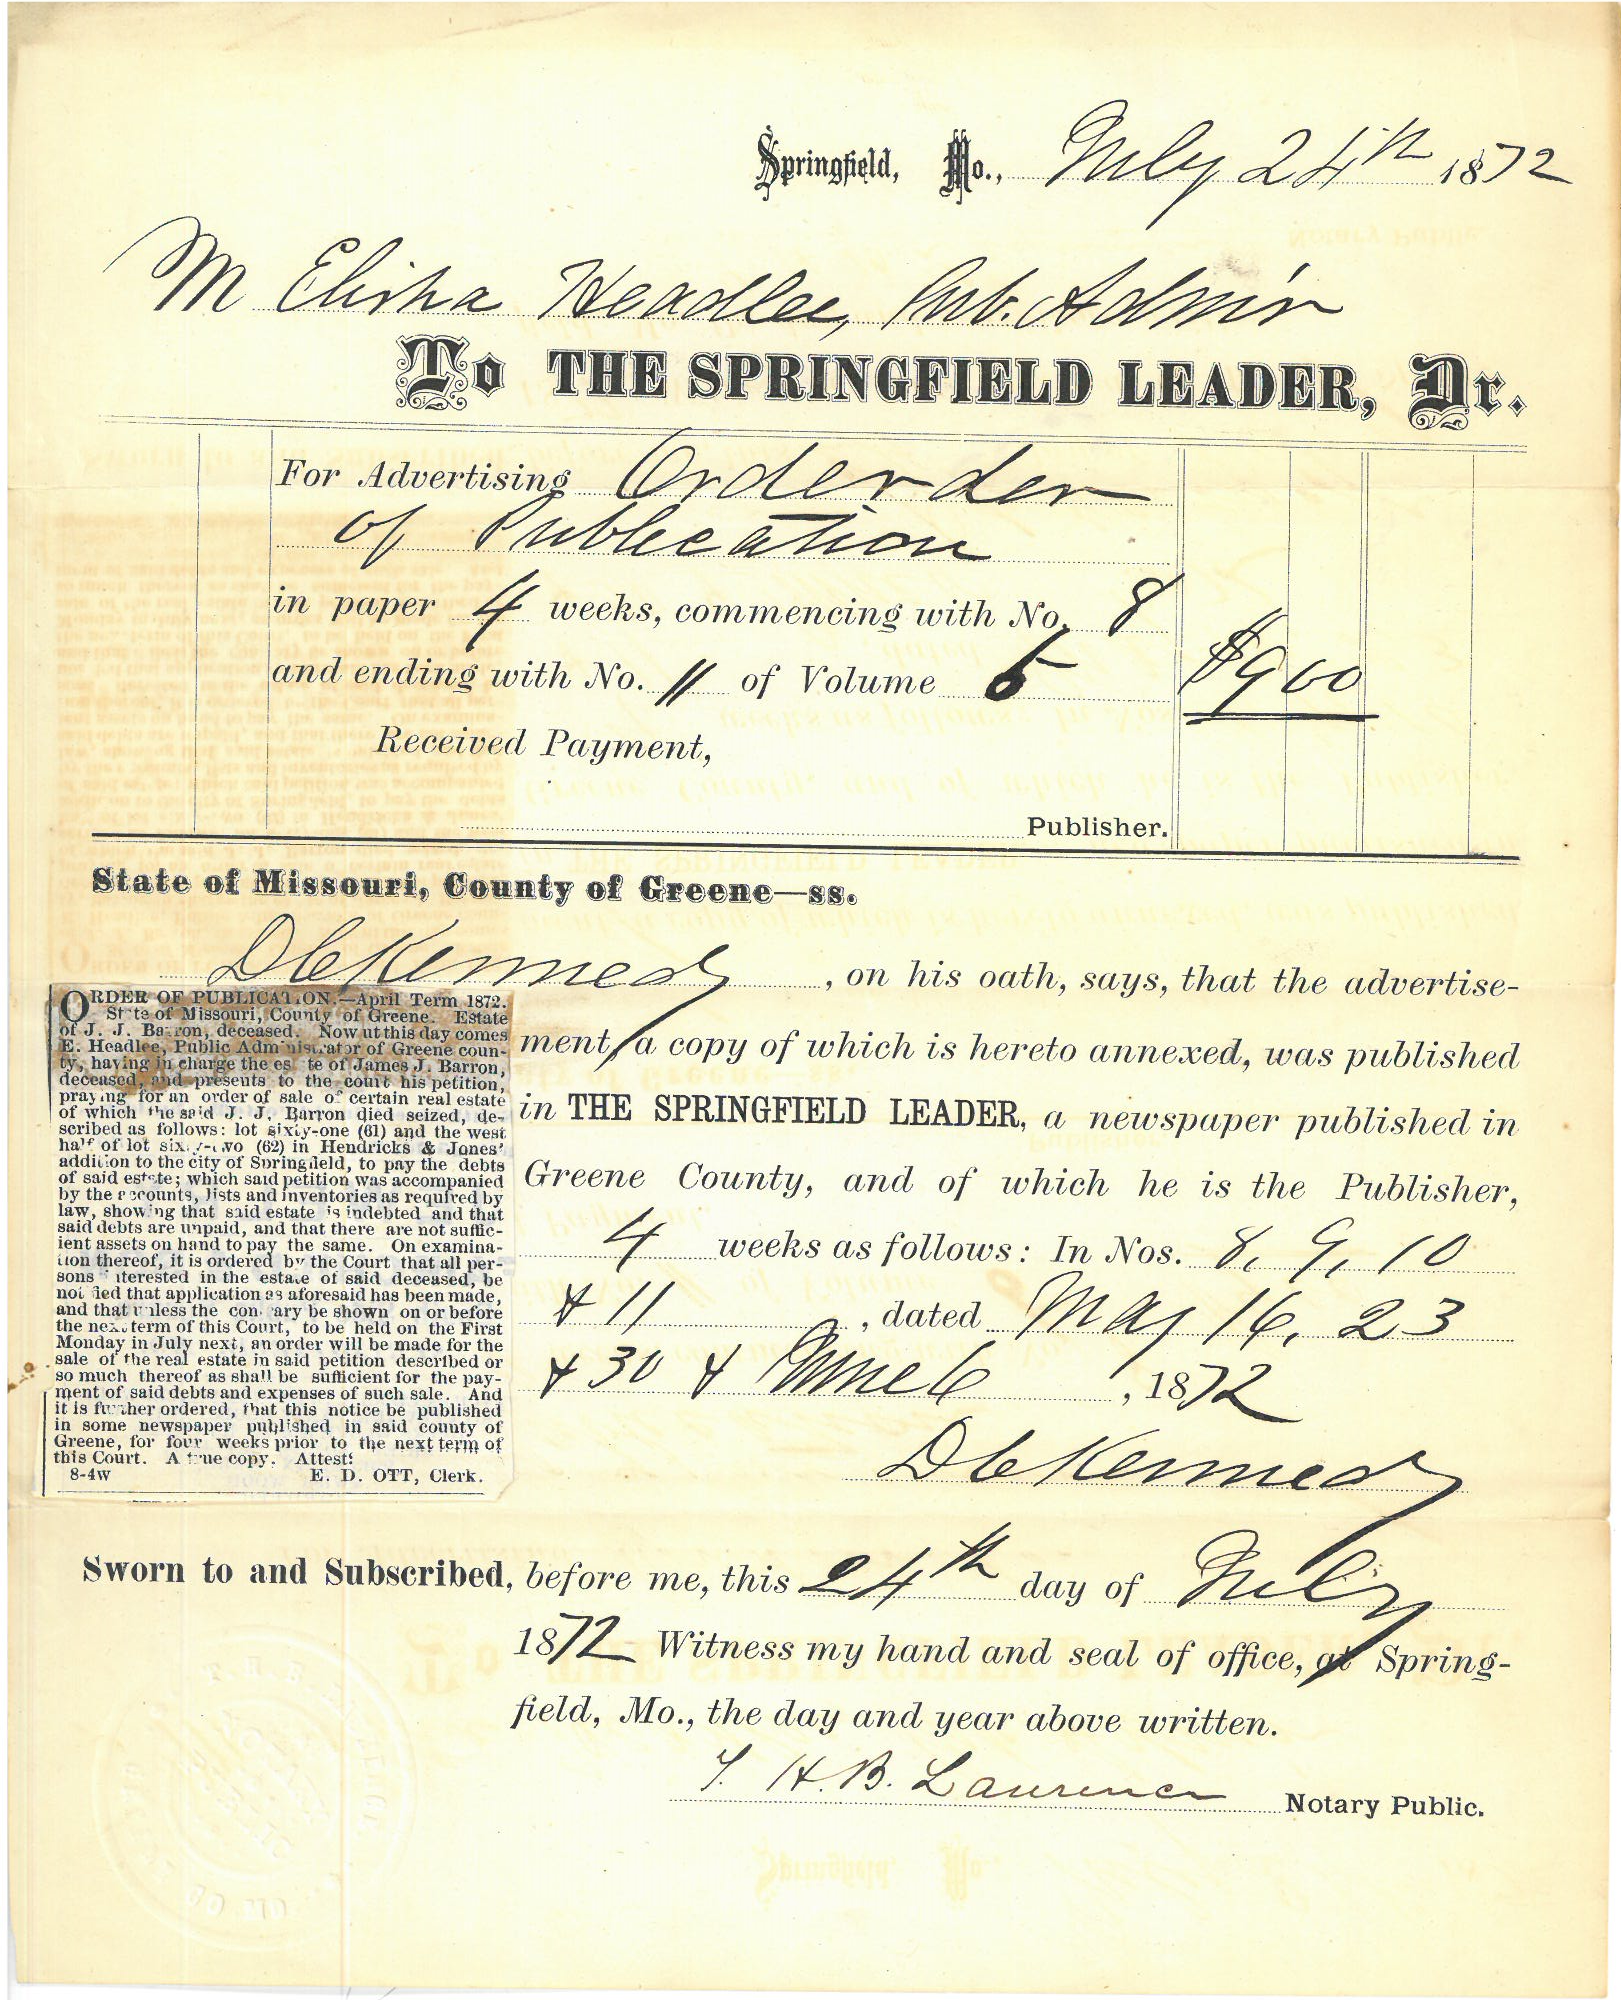 Springfield, Mo., July 24th 1872
M Elisha Headlee, Pub. Admr
To THE SPRINGFIELD LEADER, Dr.
For Advertising Orderder
of Publication
in paper 4 weeks, commencing with No. 8
and ending with No. 11 of Volume 6
$9 00
Received Payment,
Publisher.
State of Missouri, County of Greene—ss.
D C Kennedy, on his oath, says, that the advertise-
ment, a copy of which is hereto annexed, was published
in THE SPRINGFIELD LEADER, a newspaper published in
Greene County, and of which he is the Publisher,
4 weeks as follows: In Nos. 8, 9, 10
& 11, dated May 16, 23
& 30 & June 6, 1872
D C Kennedy
ORDER OF PUBLICATION.—April Term 1872.
State of Missouri, County of Greene. Estate
of J. J. Barron, deceased. Now at this day comes
E. Headlee, Public Administrator of Greene coun-
ty, having in charge the estate of James J. Barron,
deceased, and presents to the court his petition,
praying for an order of sale of certain real estate
of which the said J. J. Barron died seized, de-
scribed as follows: lot sixty-one (61) and the west
half of lot sixty-two (62) in Hendricks & Jones'
addition to the city of Springfield, to pay the debts
of said estate; which said petition was accompanied
by the accounts, lists and inventories as required by
law, showing that said estate is indebted and that
said debts are unpaid, and that there are not suffic-
ient assets on hand to pay the same. On examina-
tion thereof, it is ordered by the Court that all per-
sons interested in the estate of said deceased, be
notified that application as aforesaid has been made,
and that unless the contrary be shown on or before
the next term of this Court, to be held on the First
Monday in July next, an order will be made for the
sale of the real estate in said petition described or
so much thereof as shall be sufficient for the pay-
ment of said debts and expenses of such sale. And
it is further ordered, that this notice be published
in some newspaper published in said county of
Greene, for four weeks prior to the next term of
this Court. A true copy. Attest:
8-4w E. D. OTT, Clerk.
Sworn to and Subscribed, before me, this 24th day of July
1872 Witness my hand and seal of office, at Spring-
field, Mo., the day and year above written.
H. B. Lawrence Notary Public.